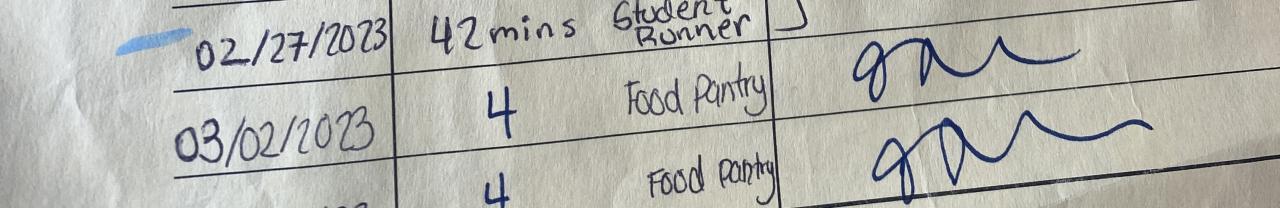 02/27/2023 42 mins Student
Runner
03/02/2023 4 Food Pantry
4 Food Pantry